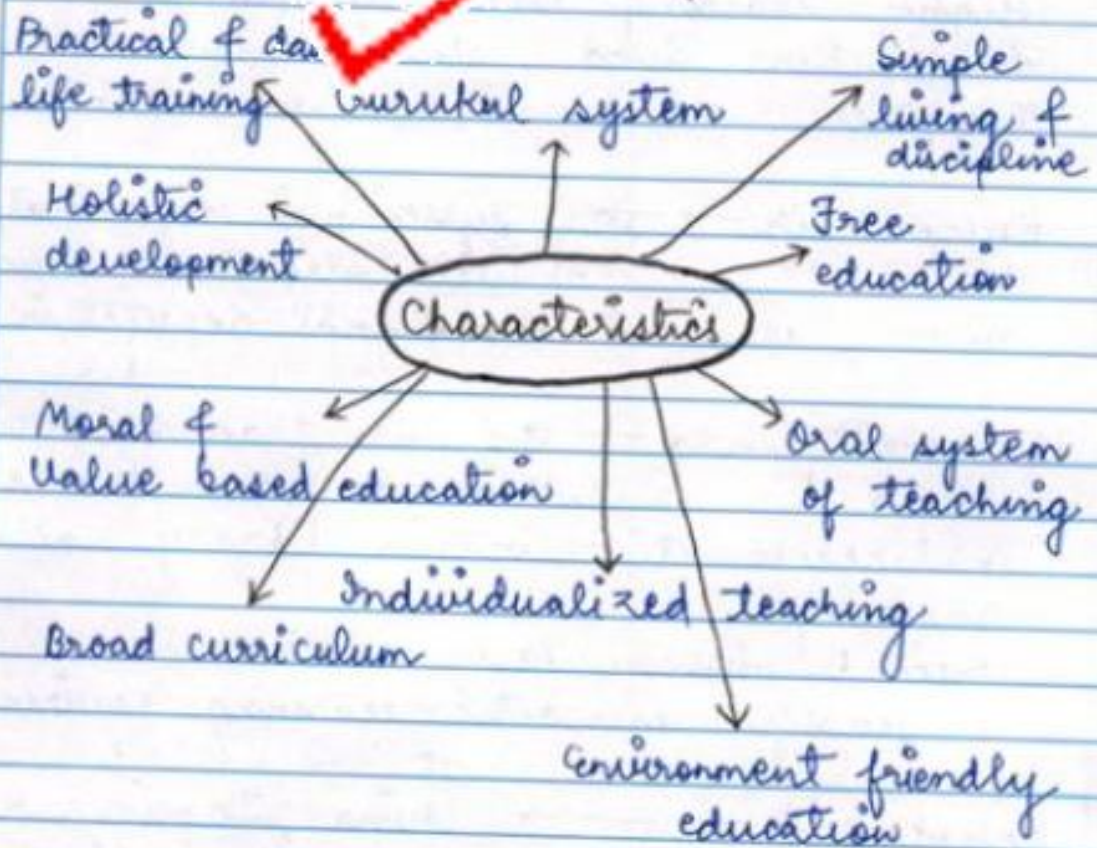 Practical &
life training
Gurukul system
Simple
living &
discipline
Holistic
development
Free
education
Characteristics
Moral &
Value based education
Oral system
of teaching
Individualized teaching
Broad curriculum
Environment friendly
education